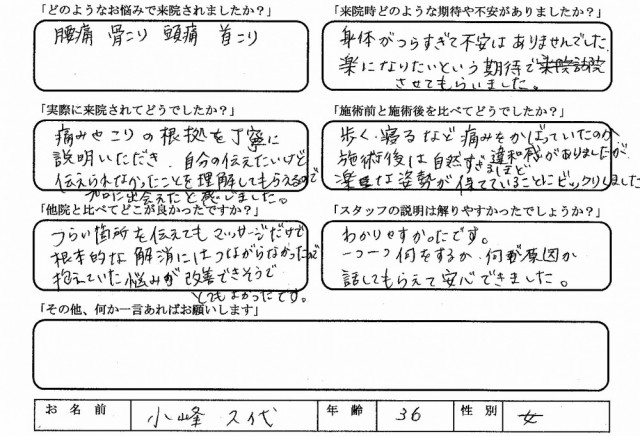 「どのようなお悩みで来院されましたか？」
腰痛 骨こり 頭痛 首こり
「来院時どのような期待や不安がありましたか？」
身体がつらすぎて不安はありませんでした。
楽になりたいという期待で来院
させてもらいました。
「実際に来院されてどうでしたか？」
痛みやこりの根拠を丁寧に
説明いただき、自分の伝えたいけど
伝えられなかったことを理解してもらえるので
プロに出会えたと感じました。
「施術前と施術後を比べてどうでしたか？」
歩く、寝るなど痛みをかばっていたのが
施術後は自然すぎて違和感がありましたが
楽な姿勢が保てていることにビックリしました
「他院と比べてどこが良かったですか？」
つらい箇所を伝えてもマッサージだけで
根本的な解消にはつながらなかったので
抱えていた悩みが改善できそうで
とてもよかったです。
「スタッフの説明は解りやすかったでしょうか？」
わかりやすかったです。
一つ一つ何をするか、何が原因か
話してもらえて安心できました。
「その他、何か一言あればお願いします」
お名前 小峰 代 年齢 36 性別 女